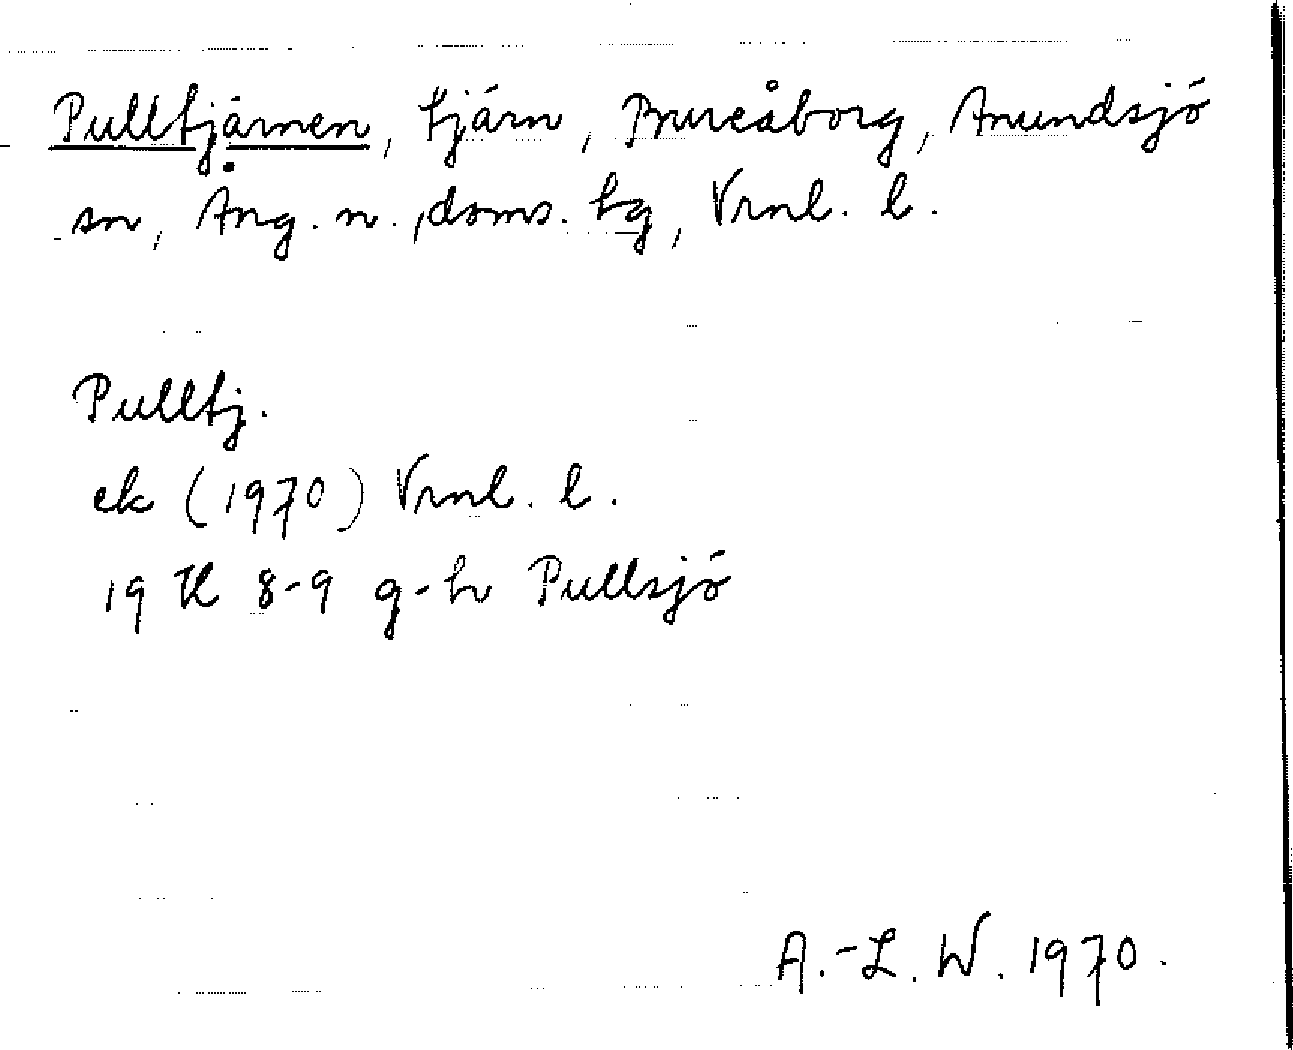 Pulltjärnen, tjärn, Brureåborg, Anundsjö
sn, Ång. n., doms. hg, Vrnl. l.
Pulltj.
ek (1970) Vrnl. l.
19 H 8-9 g-h Pullsjö
A.-L. W. 1970.